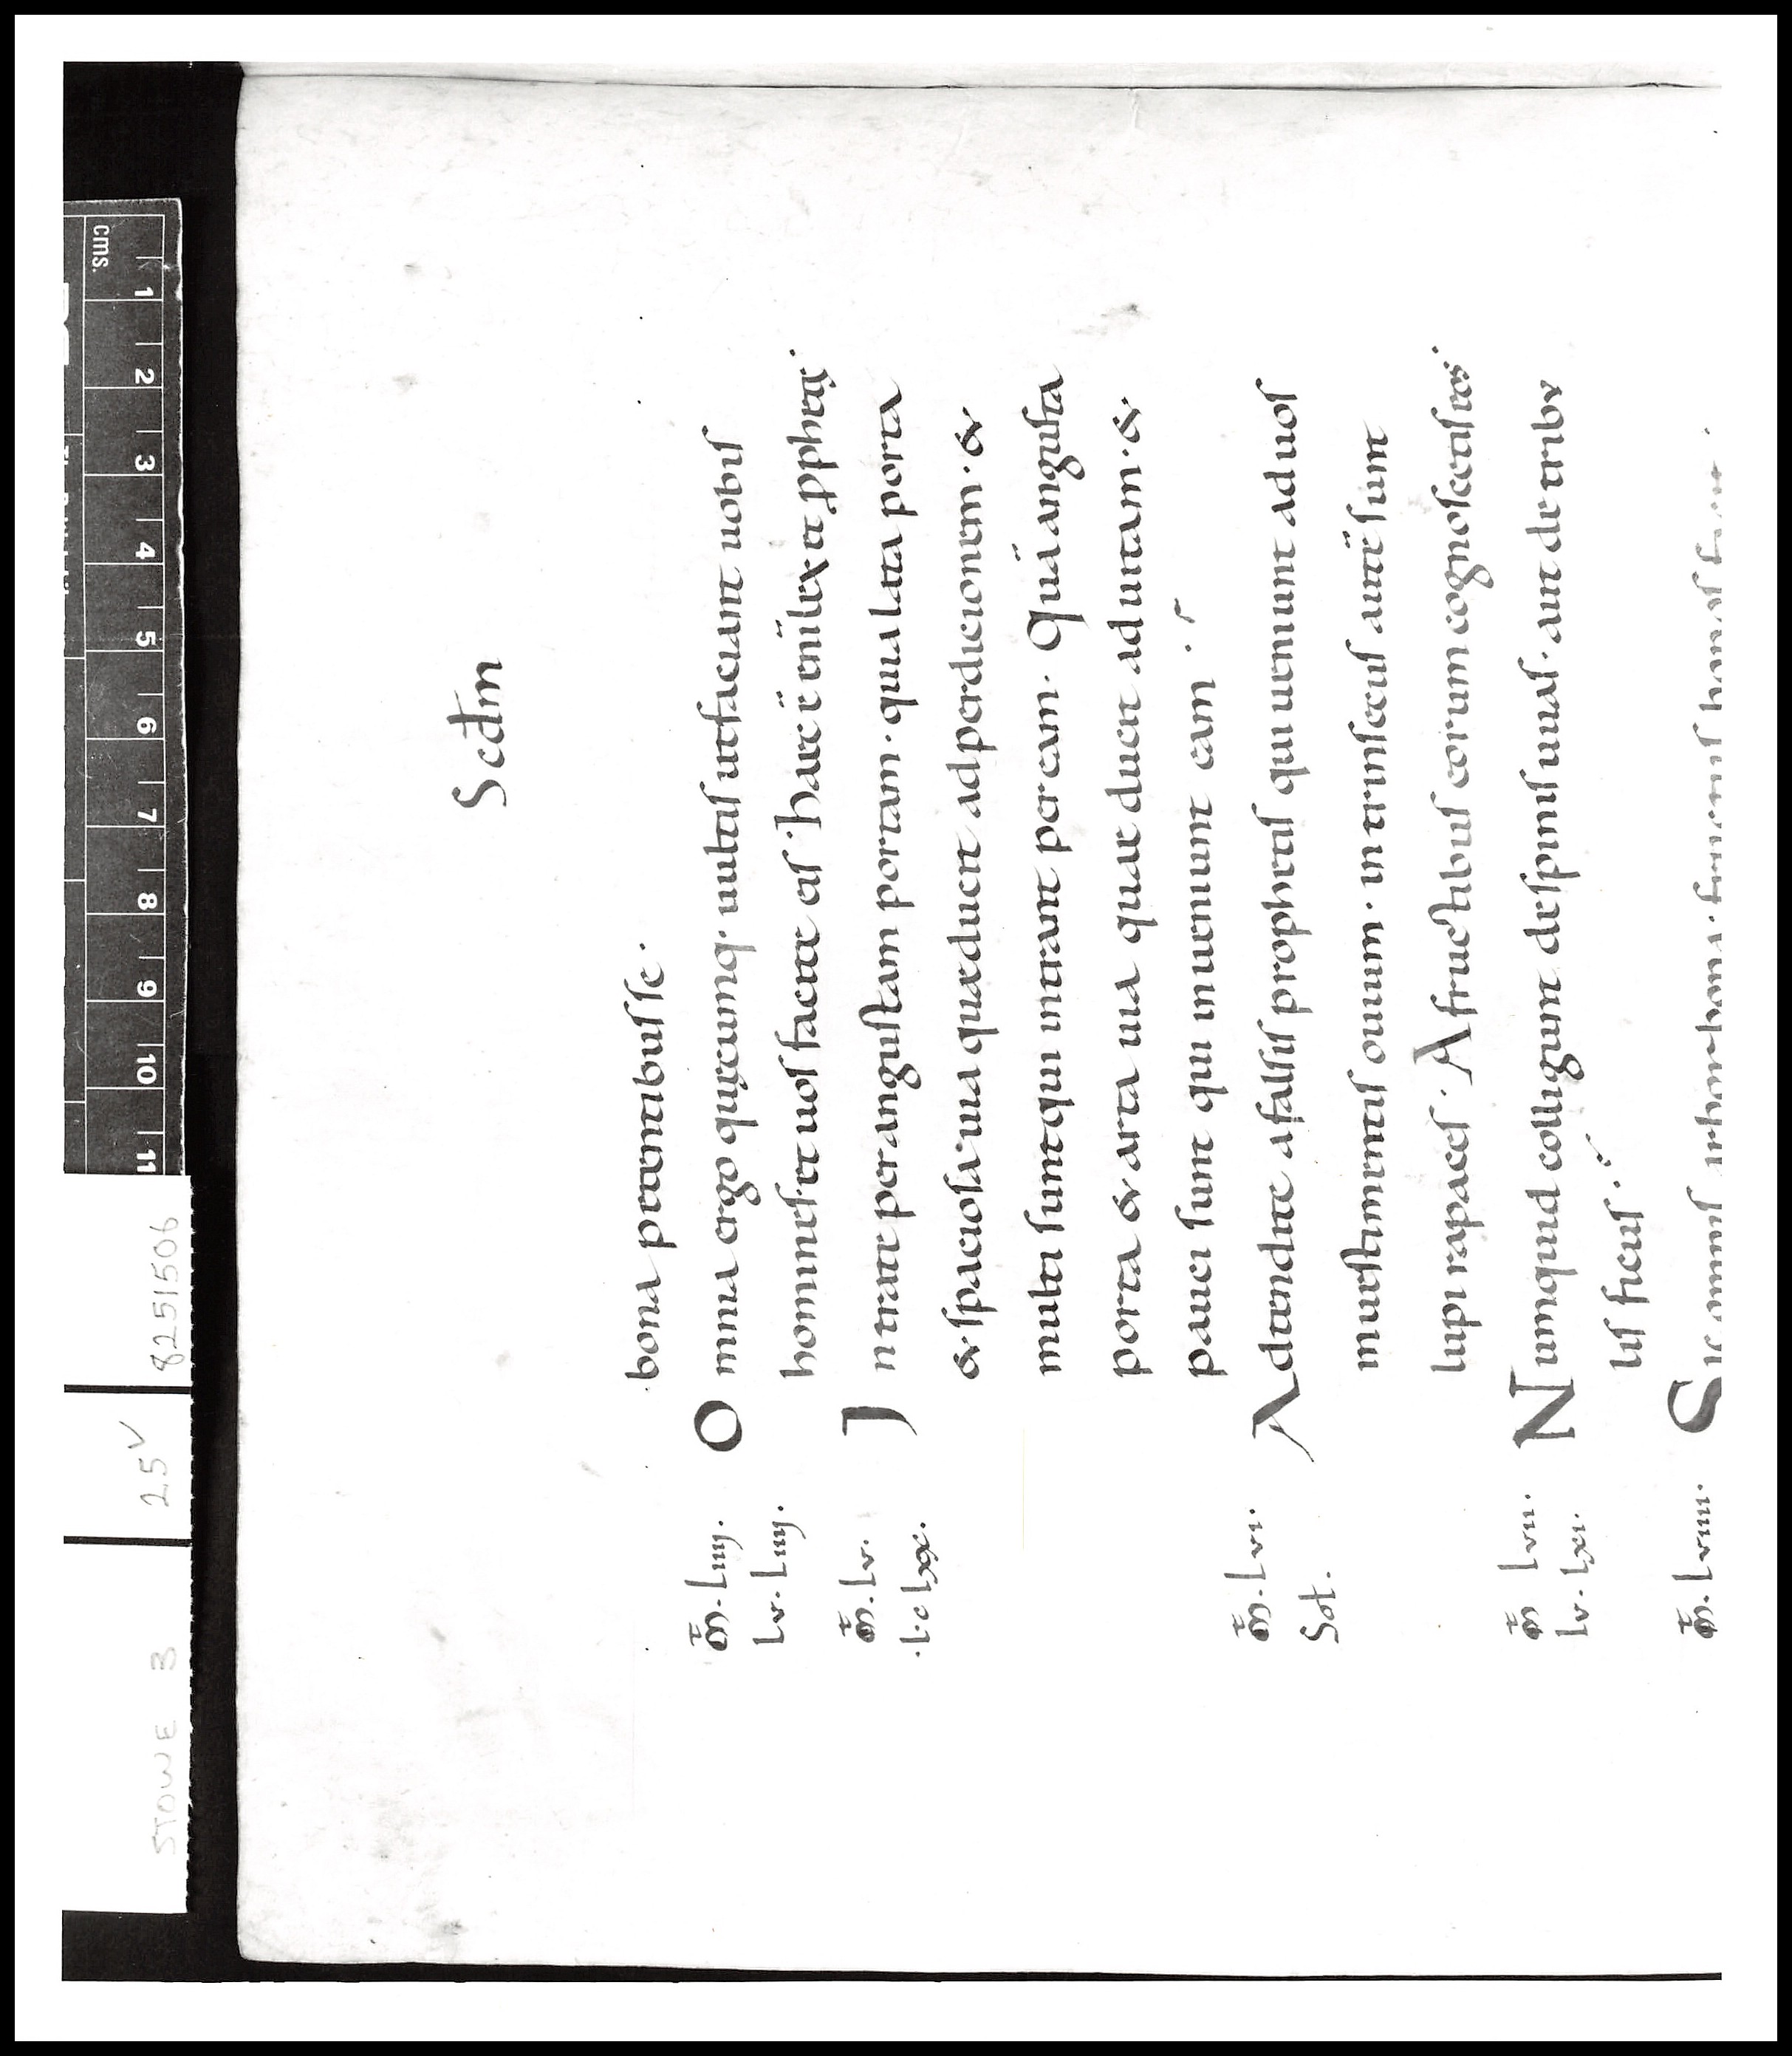 Scdm
bona petentibus se .
Omnia ergo quęcumq; uultis ut faciant uobis
homines et uos facite eis . haec ē enī lex et pphetę .
Intrate per angustam portam . quia lata porta
& spaciosa uia quae ducit ad perdicionem . &
multi sunt qui intrant per eam . Quā angusta
porta & arta uia quae ducit ad uitam . &
pauci sunt qui inueniunt eam .
Adtendite a falsis prophetis qui ueniunt ad uos
in uestimentis ouium . intrinsecus autē sunt
lupi rapaces . A fructibus eorum cognoscetis eos .
Numquid colligunt de spinis uuas . aut de tribu
lis ficus .
Sic omnis arbor bona . fructus bonos
m̄ . Liiij .
Lv . Liiij .
m̄ . Lv .
Lc Lxx .
m̄ . Lvi .
Sol .
m̄ Lvii .
Lv . Lxi .
m̄ . Lviii .
STOWE 3
25v
8251506
cms.
1
2
3
4
5
6
7
8
9
10
11